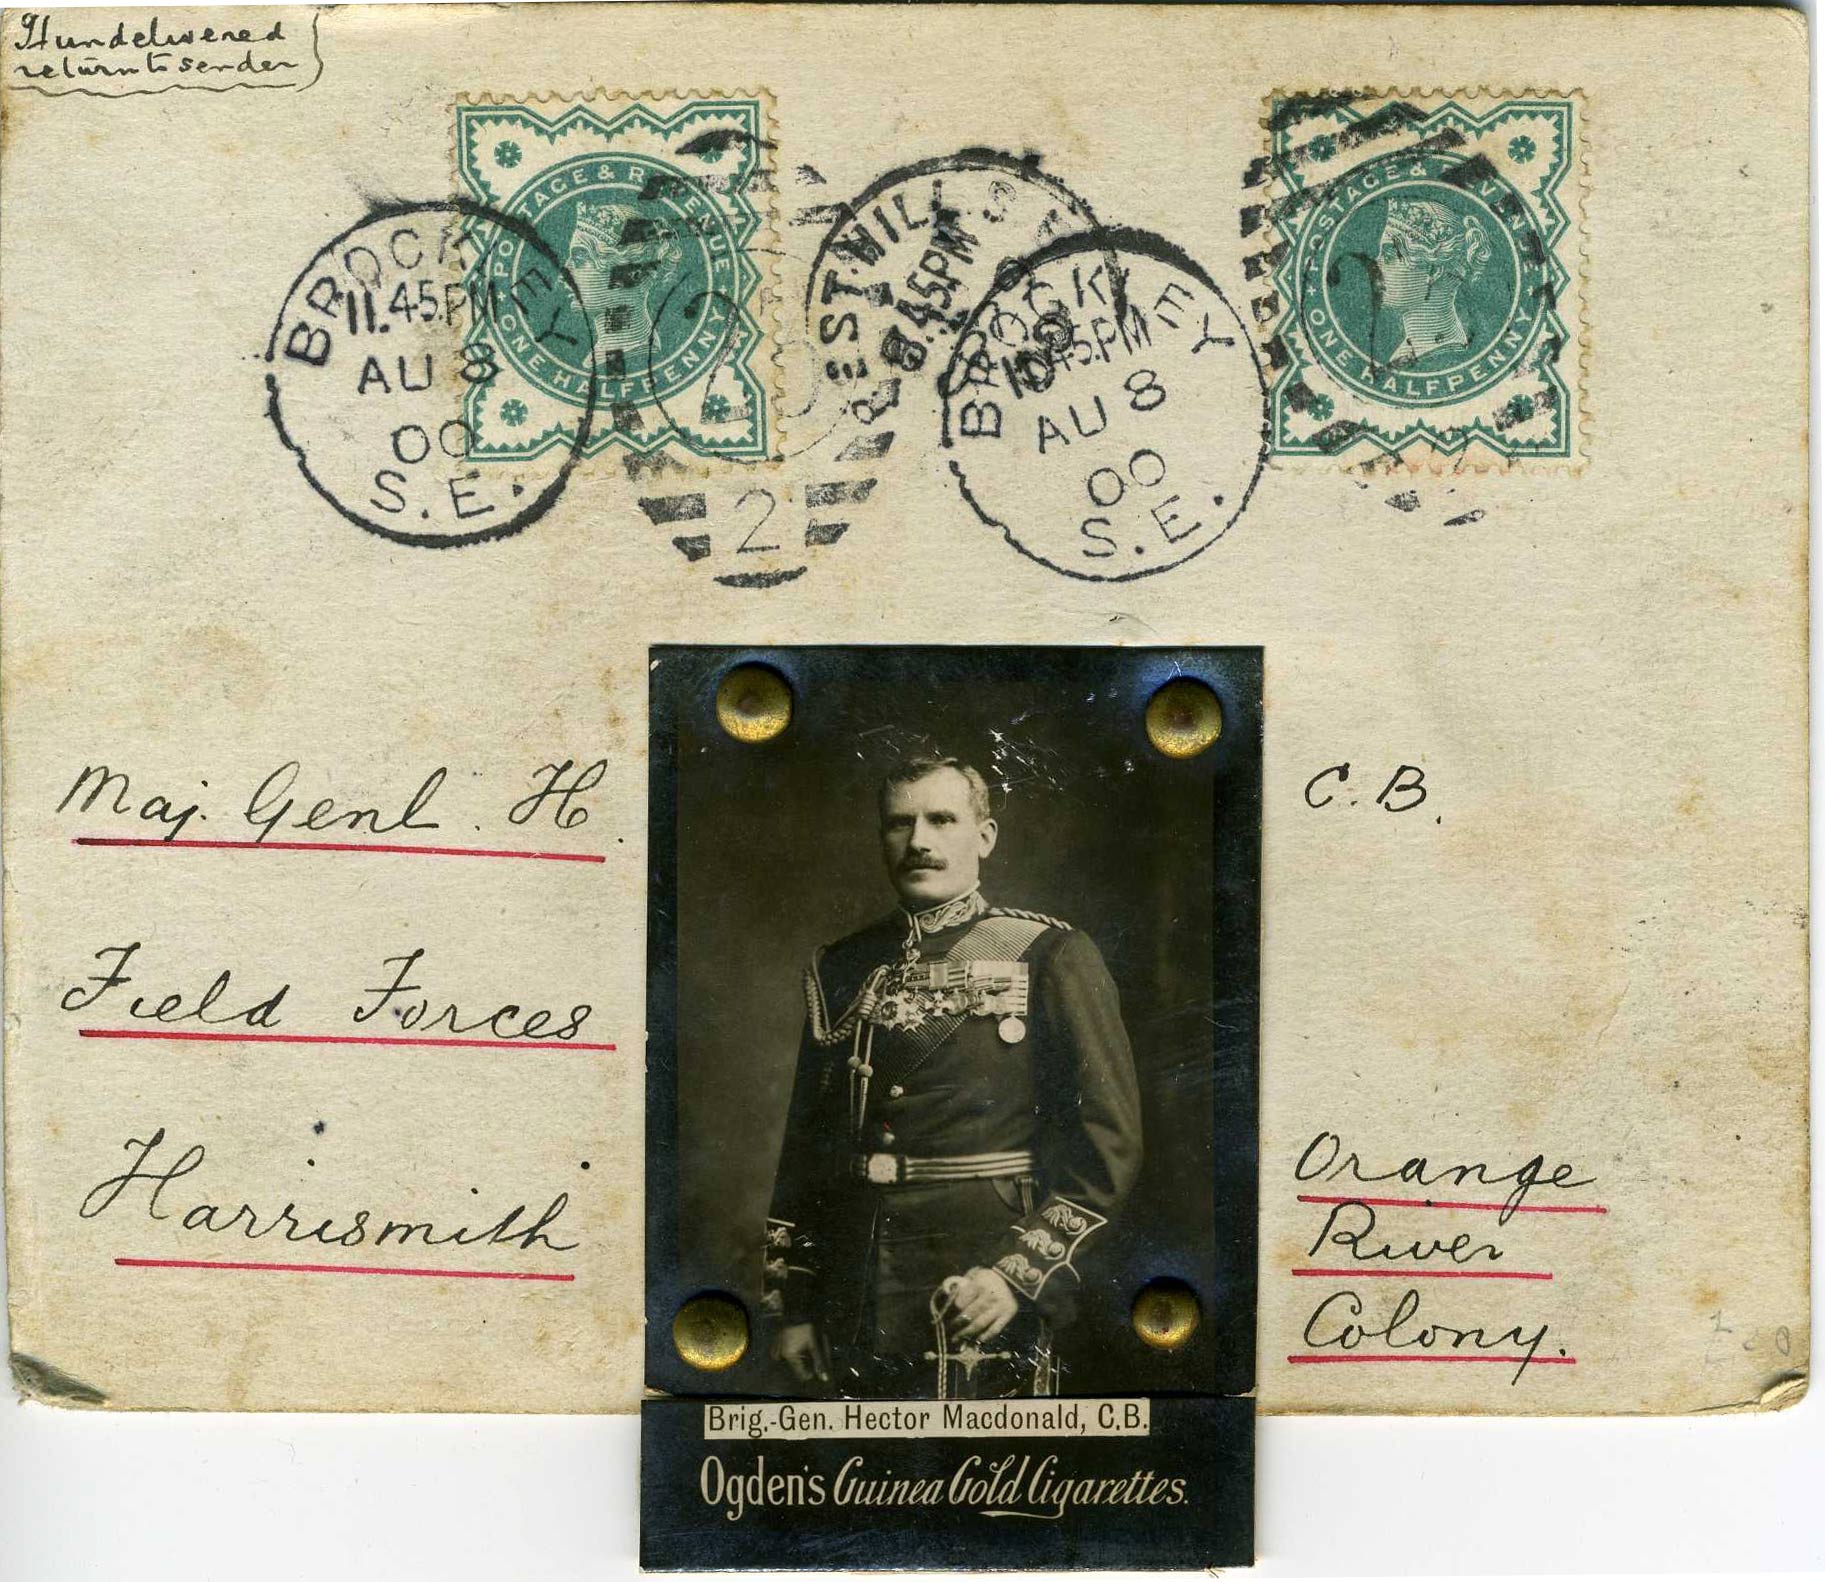 If undelivered
return to sender
POSTAGE & REVENUE
ONE HALFPENNY
POSTAGE & REVENUE
ONE HALFPENNY
BROCKLEY
11.45.PM
AU 8
00
S.E.
2
EST.HILL.S.E
8.45PM
BROCKLEY
10.45.PM
AU 8
00
S.E.
2
Maj. Genl. H. C.B.
Field Forces
Harrismith Orange
River
Colony.
Brig.-Gen. Hector Macdonald, C.B.
Ogden's Guinea Gold Cigarettes.